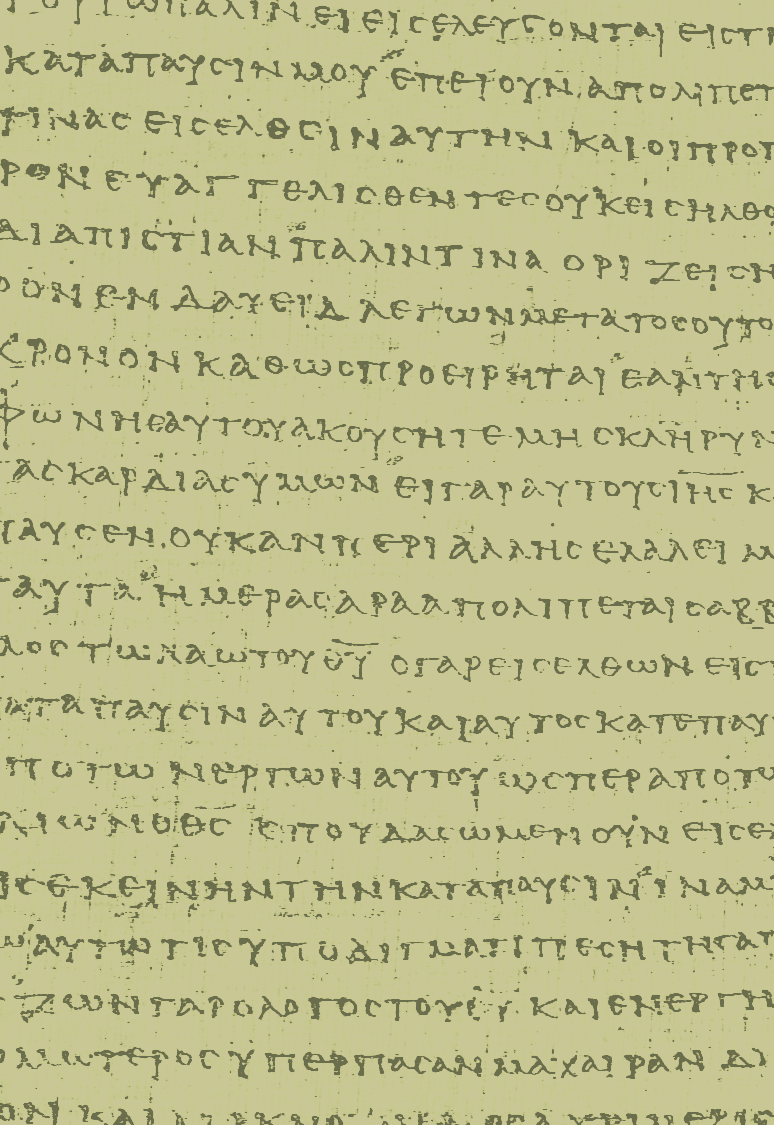 τουτωπαλινειεισελευσονταιειστη
καταπαυσινμουεπειουναπολιπετ
τινασεισελθεινειναυτηνκαιοιπροτ
ρονευαγγελισθεντεσουκεισηλθο
διαπιστιανπαλιντιναοριζειση
ρονενδαυειδλεγωνμετατοσουτο
χρονονκαθωσπροειρηταιεαντησ
φωνηεαυτουακουσητεμησκληρυν
τασκαρδιασυμωνειγαραυτουσιησκ
παυσενουκανπεριαλλησελαλειμ
ταυταημερασαρααπολιπεταισαββ
λοστωλαωτουθυογαρεισελθωνειστ
καταπαυσιναυτουκαιαυτοσκατεπαυ
αποτωνεργωναυτουωσπεραποτω
ιδιωνοθσσπουδασωμενουνεισελ
εισεκεινηντηνκαταπαυσινιναμη
εναυτωτισυποδιγματιπεσητησαπ
ζωνγαρολογοστουθυκαιενεργη
τομωτεροσυπερπασανμαχαιρανδι